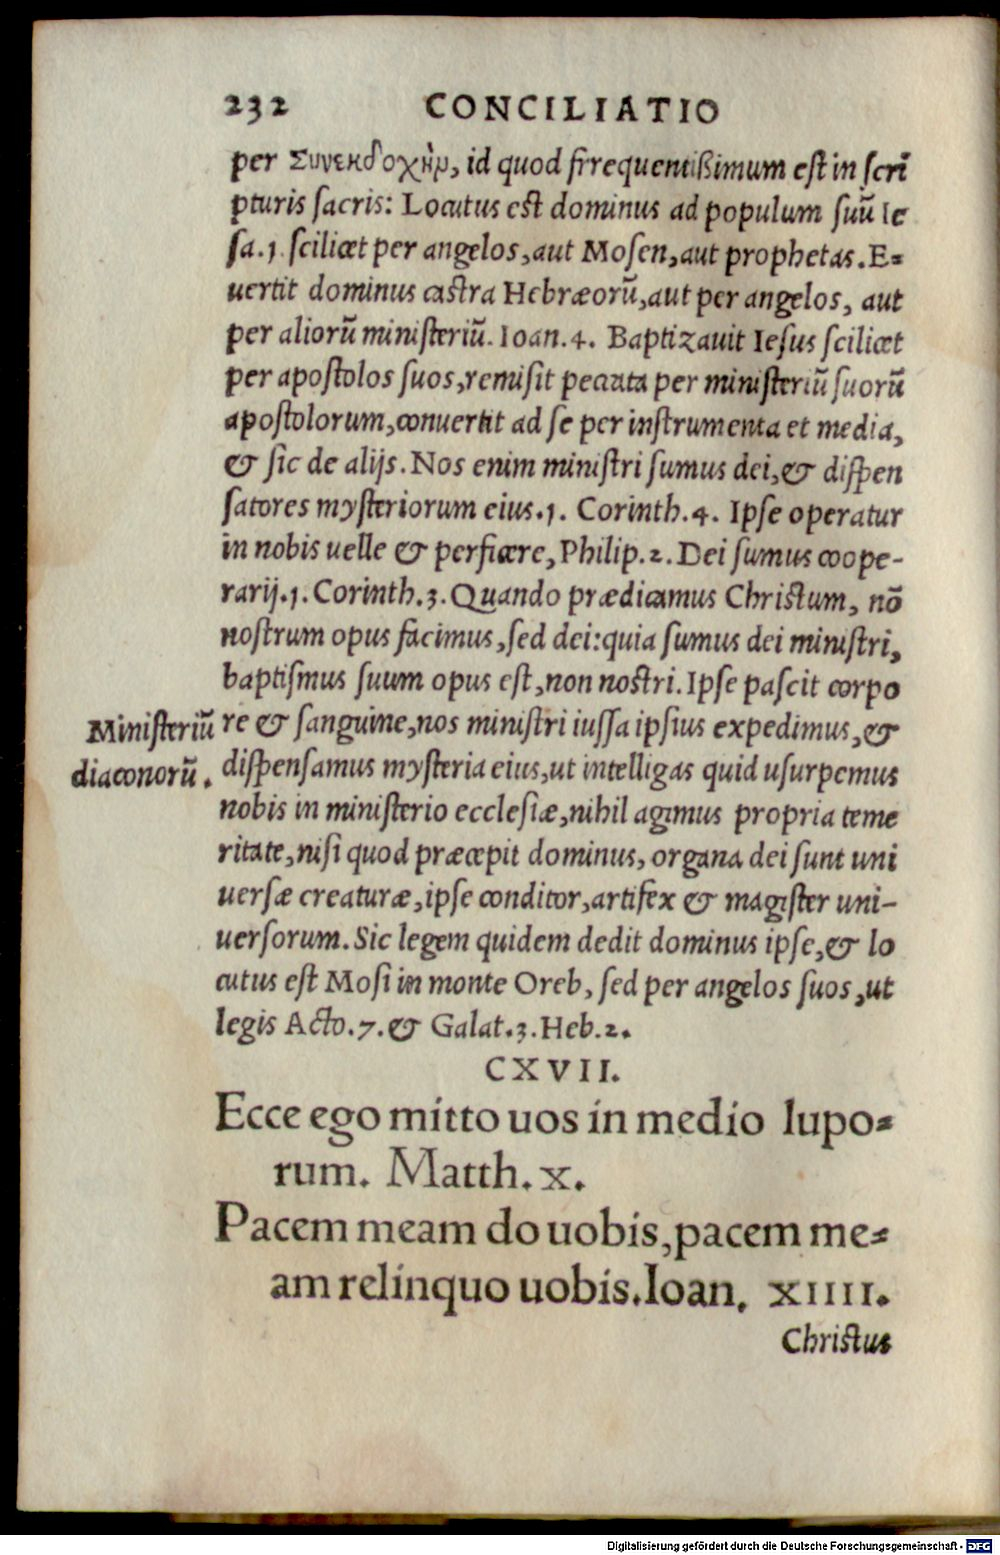 232 CONCILIATIO
per Συνεκδοχὴν, id quod frrequentißimum est in scrī
pturis sacris: Locutus est dominus ad populum suū Ie
sa.1. scilicet per angelos, aut Mosen, aut prophetas. E=
uertit dominus castra Hebræorū, aut per angelos, aut
per aliorū ministeriū. Ioan.4. Baptizauit Iesus scilicet
per apostolos suos, remisit peccata per ministeriū suorū
apostolorum, conuertit ad se per instrumenta et media,
& sic de alijs. Nos enim ministri sumus dei, & dispen
satores mysteriorum eius.1. Corinth.4. Ipse operatur
in nobis uelle & perficere, Philip.2. Dei sumus coope-
rarij.1. Corinth.3. Quando prædicamus Christum, nō
nostrum opus facimus, sed dei: quia sumus dei ministri,
baptismus suum opus est, non nostri. Ipse pascit corpo
re & sanguine, nos ministri iussa ipsius expedimus, &
dispensamus mysteria eius, ut intelligas quid usurpemus
nobis in ministerio ecclesiæ, nihil agimus propria teme
ritate, nisi quod præcepit dominus, organa dei sunt uni
uersæ creaturæ, ipse conditor, artifex & magister uni-
uersorum. Sic legem quidem dedit dominus ipse, & lo
cutus est Mosi in monte Oreb, sed per angelos suos, ut
legis Acto.7. & Galat.3. Heb.2.
Ministeriū
diaconorū.
CXVII.
Ecce ego mitto uos in medio lupo=
rum. Matth. x.
Pacem meam do uobis, pacem me=
am relinquo uobis. Ioan. XIIII.
Christus
Digitalisierung gefördert durch die Deutsche Forschungsgemeinschaft - DFG